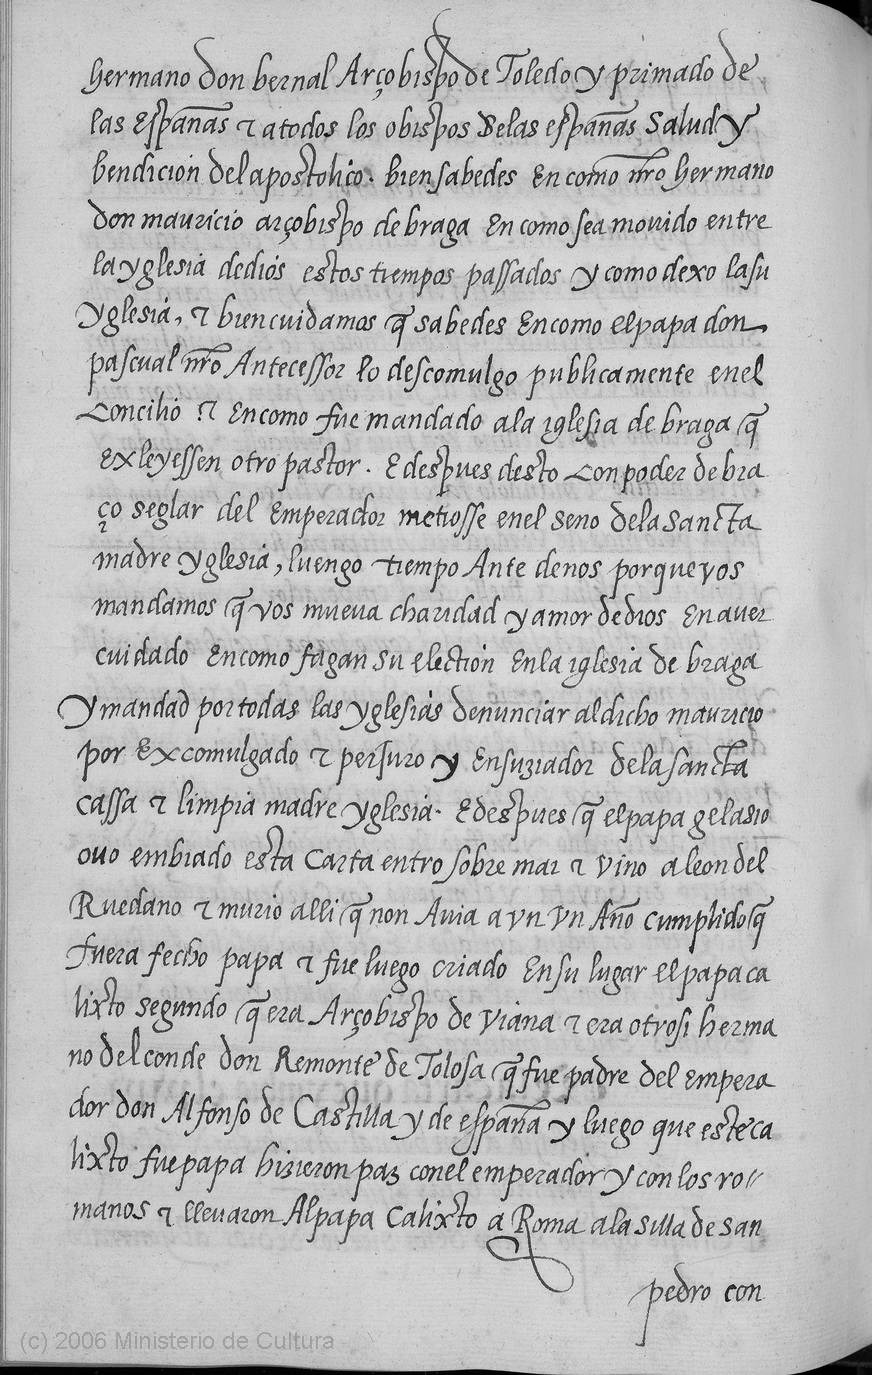 hermano don bernal Arçobispo de Toledo y primado de
las Españas τ a todos los obispos de las españas Salud y
bendicion del apostolico. bien sabedes En como nr̃o hermano
don mauricio arçobispo de braga En como sea mouido entre
la yglesia de dios estos tiempos passados y como dexo la su
yglesia, τ bien cuidamos q̃ sabedes En como el papa don
pascual nr̃o Antecessor lo descomulgo publicamente en el
Concilio τ En como fue mandado a la iglesia de braga q̃
Exleyessen otro pastor. E despues desto Con poder de bra
ço seglar del Emperador metiosse en el seno de la sancta
madre yglesia, luengo tiempo Ante de nos porque vos
mandamos q̃ vos mueva charidad y amor de dios En aver
cuidado En como fagan su election En la iglesia de braga
y mandad por todas las yglesias denunciar al dicho mauricio
por Excomulgado τ perjuro y Ensuziador de la sancta
cassa τ limpia madre yglesia. E despues q̃ el papa gelasio
ouo embiado esta Carta entro sobre mar τ vino a leon del
Ruedano τ murio alli q̃ non Auia a vn vn Año cumplido q̃
fuera fecho papa τ fue luego criado En su lugar el papa ca
lixto segundo q̃ era Arçobispo de viana τ era otrosi herma
no del conde don Remonte de Tolosa q̃ fue padre del Empera
dor don Alfonso de Castilla y de españa y luego que este ca
lixto fue papa hizieron paz con el emperador y con los ro//
manos τ llevaron Al papa Calixto a Roma a la silla de san
pedro con
(c) 2006 Ministerio de Cultura